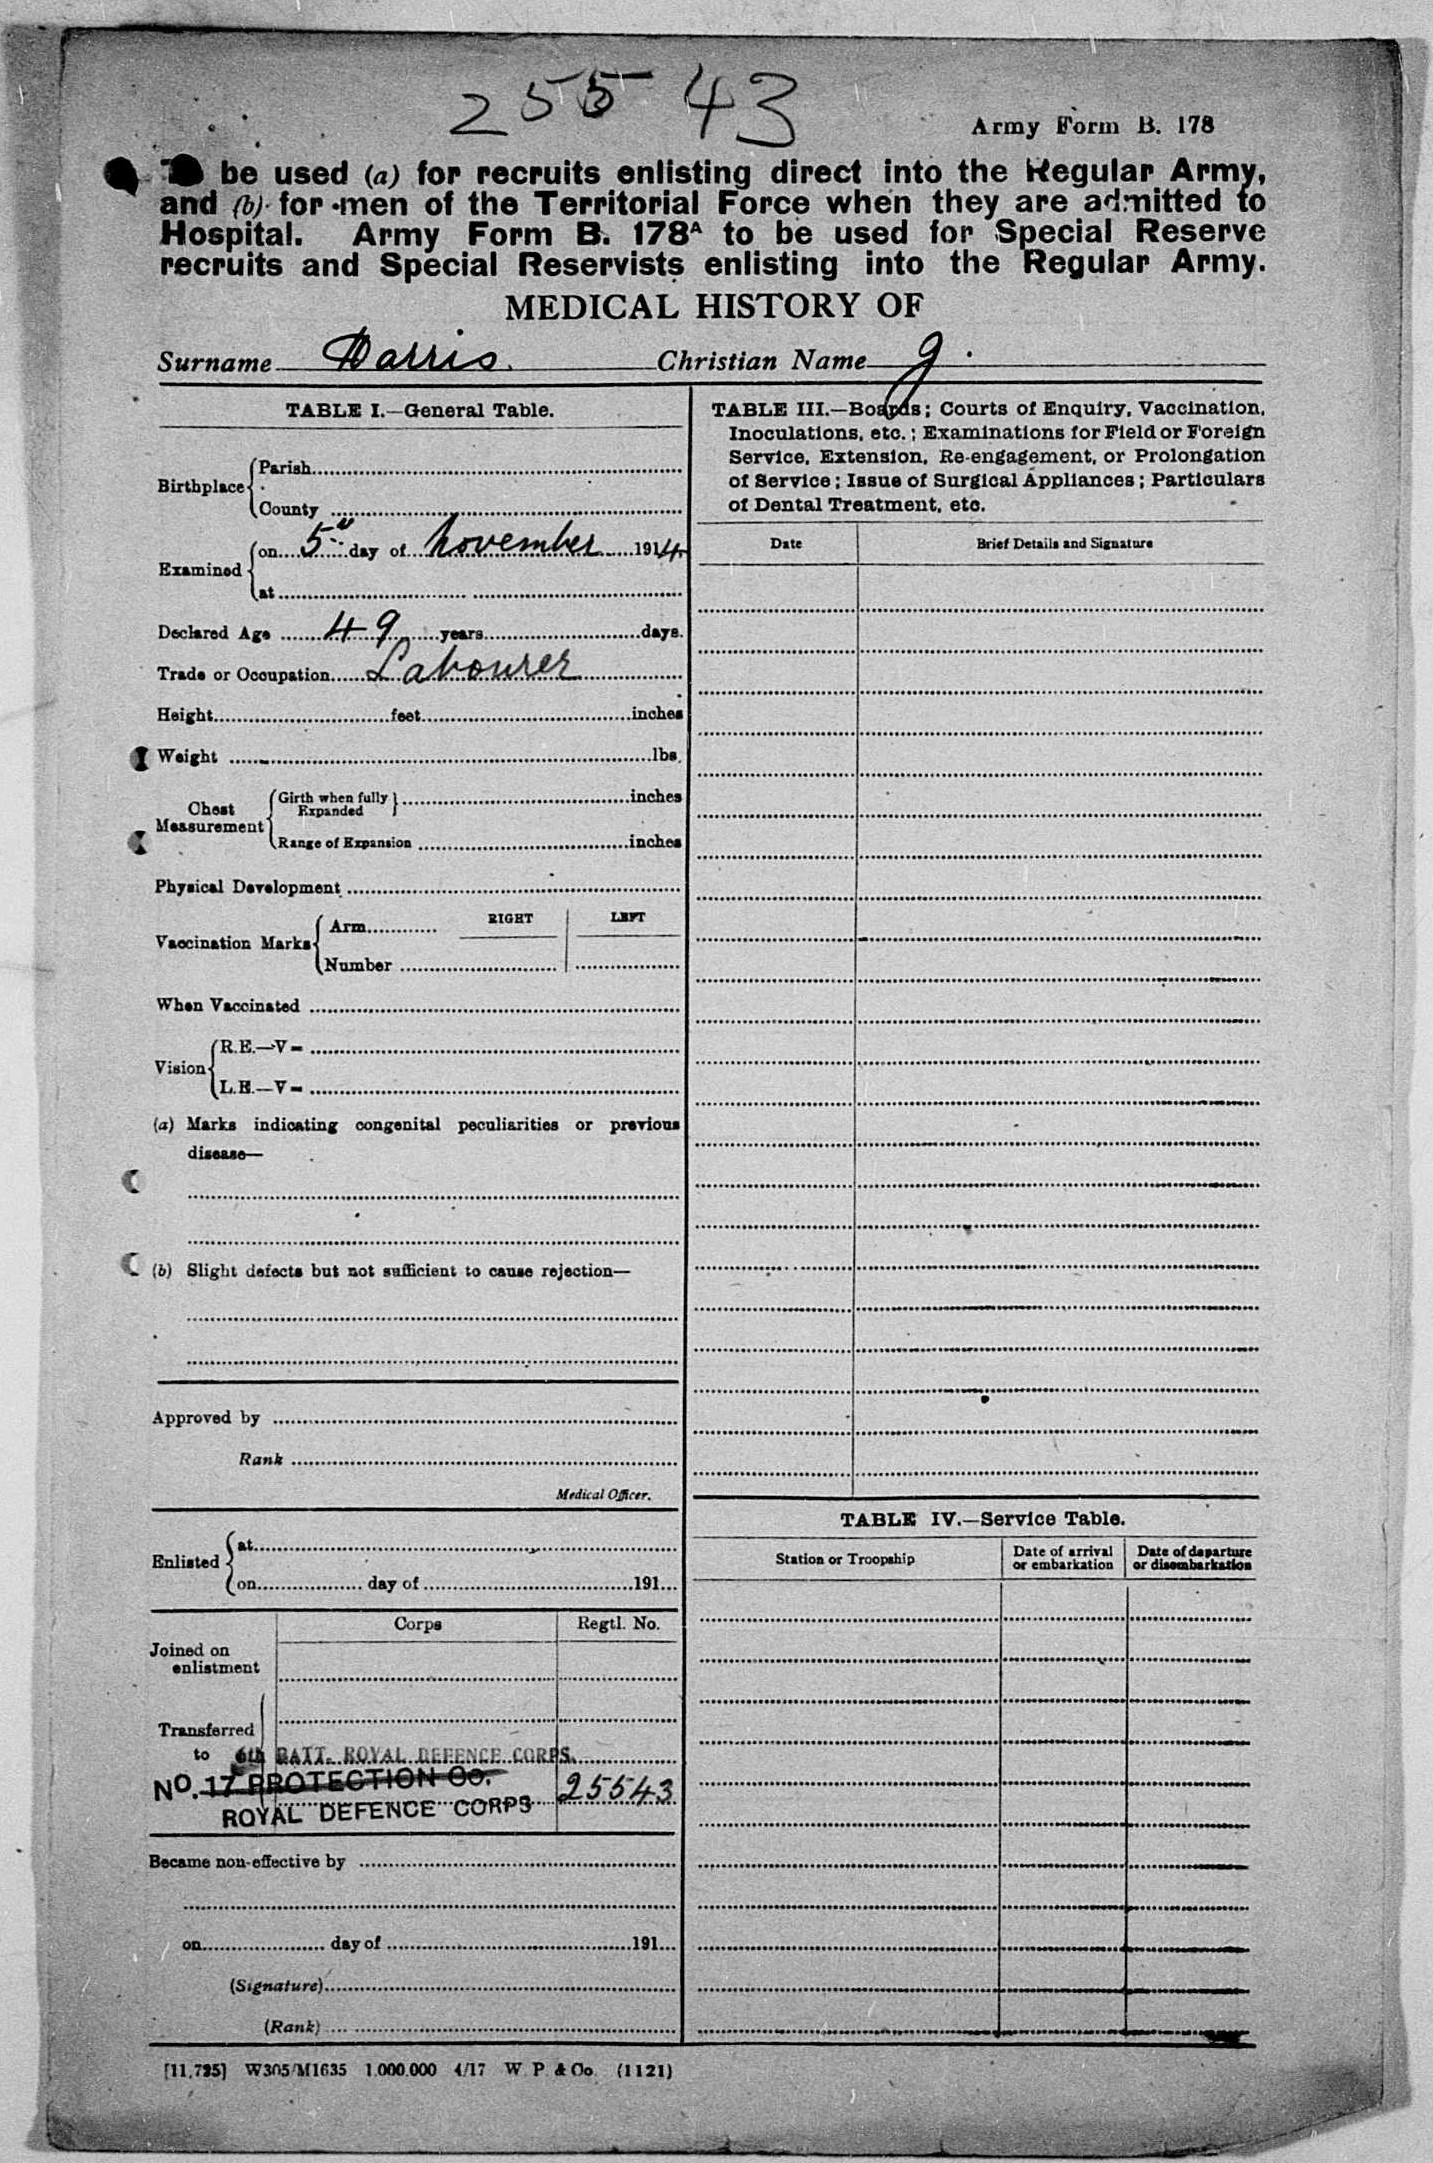 25543
Army Form B. 178
To be used (a) for recruits enlisting direct into the Regular Army,
and (b) for men of the Territorial Force when they are admitted to
Hospital. Army Form B. 178A to be used for Special Reserve
recruits and Special Reservists enlisting into the Regular Army.
MEDICAL HISTORY OF
Surname Harris. Christian Name J.
TABLE I.—General Table.
Birthplace
Parish
County
Examined
on 5th day of November 1914
at
Declared Age 49 years days.
Trade or Occupation Labourer
Height feet inches
Weight lbs.
Chest Measurement
Girth when fully Expanded inches
Range of Expansion inches
Physical Development
RIGHT LEFT
Vaccination Marks
Arm
Number
When Vaccinated
Vision
R.E.—V=
L.E.—V=
(a) Marks indicating congenital peculiarities or previous
disease—
(b) Slight defects but not sufficient to cause rejection—
Approved by
Rank
Medical Officer.
Enlisted
at
on day of 191
Corps Regtl. No.
Joined on
enlistment
Transferred
to 6th BATT. ROYAL DEFENCE CORPS.
NO. 17 PROTECTION Co. 25543
ROYAL DEFENCE CORPS
Became non-effective by
on day of 191
(Signature)
(Rank)
TABLE III.—Boards; Courts of Enquiry, Vaccination,
Inoculations, etc.; Examinations for Field or Foreign
Service, Extension, Re-engagement, or Prolongation
of Service; Issue of Surgical Appliances; Particulars
of Dental Treatment, etc.
Date Brief Details and Signature
TABLE IV.—Service Table.
Station or Troopship
Date of arrival
or embarkation
Date of departure
or disembarkation
[11,725] W305/M1635 1.000.000 4/17 W. P. & Co. (1121)